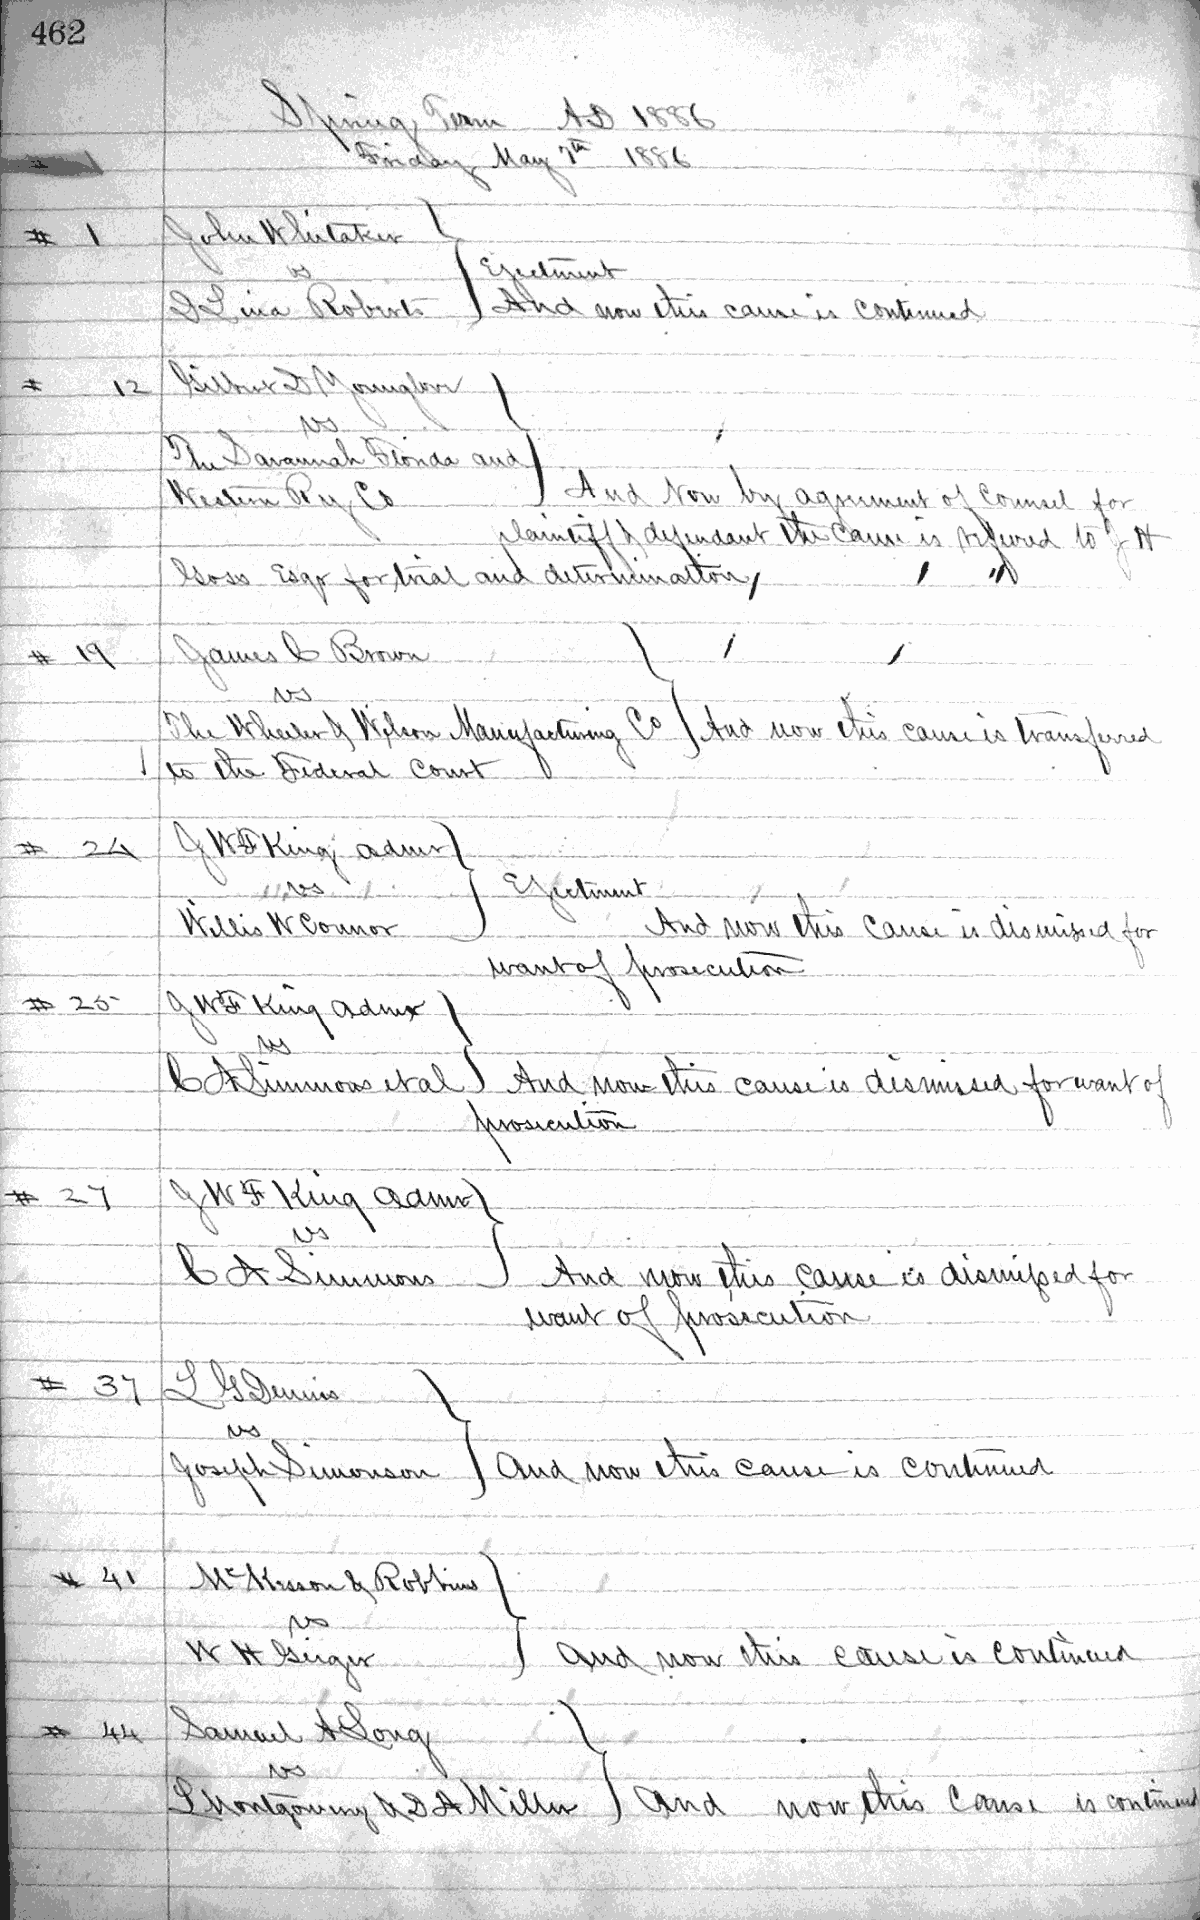 462
Spring Term AD 1886
Friday May 7th 1886
# 1 John Whitaker
vs Ejectment
Roberts And now this cause is continued
# 12 Gilbert D
vs
The Savannah Florida and
Western Ry Co And Now by agreement of Counsel for
plaintiff & defendant the Cause is refered to J H
Goss Esqr for trial and determination
# 19 James C Brown
vs
The Wheeler & Wilson Manufacturing Co And now this cause is transferred
to the Federal Court
# 24 G W F King admr
vs Ejectment
Willis W Connor And now this Cause is dismissed for
want of prosecution
# 25 G W F King admr
vs
C A Simmons et al And now this cause is dismissed for want of
prosecution
# 27 G W F King admr
vs
C A Simmons And now this cause is dismissed for
want of prosecution
# 37 L G Dennis
vs
Joseph Simonson And now this cause is continued
# 41 McKesson & Robbins
vs
W H Geiger And now this cause is continued
# 44 Samuel A Long
vs
L Montgomery & D A Miller And now this Cause is continued